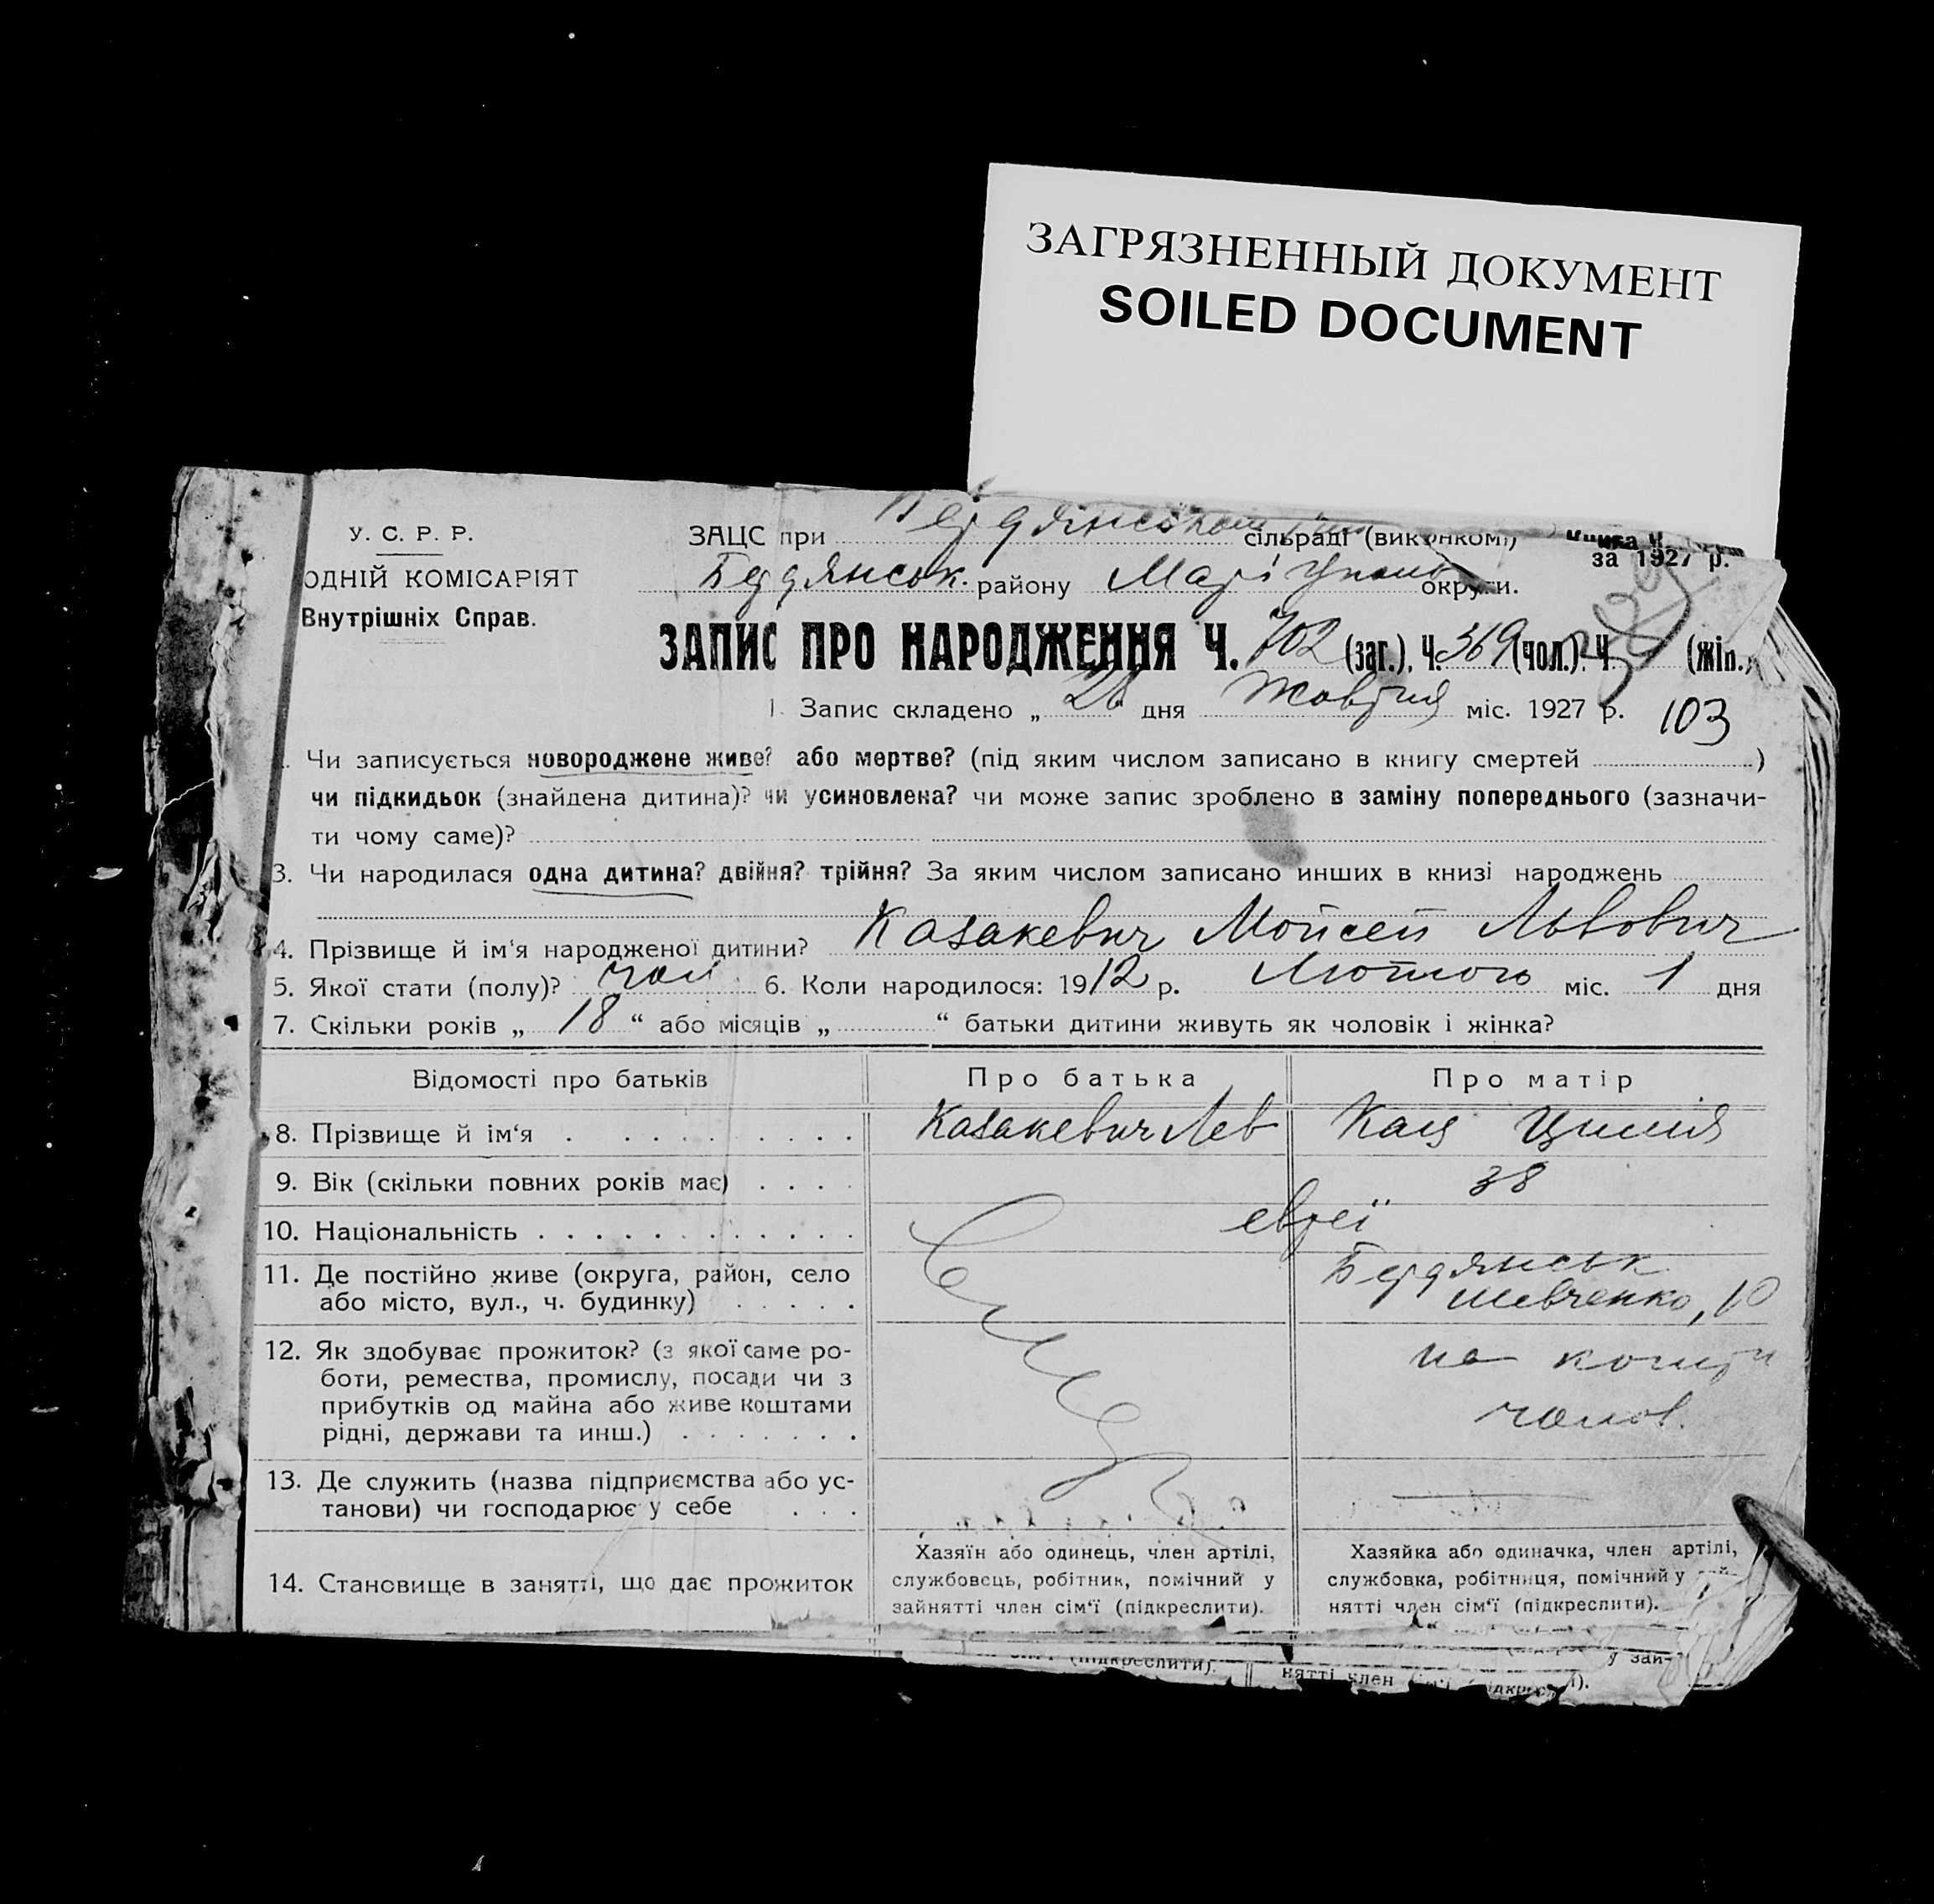 ЗАГРЯЗНЕННЫЙ ДОКУМЕНТ
SOILED DOCUMENT
У. С. Р. Р.
ОДНІЙ КОМІСАРІЯТ
Внутрішніх Справ.
ЗАЦС при сільраді (виконкомі)
Бердянськ. району округи.
Книга
за 1927 р.
ЗАПИС ПРО НАРОДЖЕННЯ Ч. 702 (заг.), Ч. 369 (чол.). Ч. (жін.)
1. Запис складено „ " дня Жовтня міс. 1927 р. 103
Чи записується новороджене живе? або мертве? (під яким числом записано в книгу смертей )
чи підкидьок (знайдена дитина)? чи усиновлена? чи може запис зроблено в заміну попереднього (зазначи-
ти чому саме)?
3. Чи народилася одна дитина? двійня? трійня? За яким числом записано инших в книзі народжень
4. Прізвище й ім'я народженої дитини? Казакевич Мойсей Львович
5. Якої стати (полу)? чол 6. Коли народилося: 1912 р. Лютого міс. 1 дня
7. Скільки років „ 18 “ або місяців „ “ батьки дитини живуть як чоловік і жінка?
Відомості про батьків Про батька Про матір
8. Прізвище й ім'я Казакевич Лев Кац Цилія
9. Вік (скільки повних років має) 38
10. Національність евреї
11. Де постійно живе (округа, район, село
або місто, вул., ч. будинку)
Бердянськ
Шевченко, 10
12. Як здобуває прожиток? (з якої саме ро-
боти, ремества, промислу, посади чи з
прибутків од майна або живе коштами
рідні, держави та инш.)
на кошти
чолов.
13. Де служить (назва підприємства або ус-
танови) чи господарює у себе
14. Становище в занятті, що дає прожиток
Хазяїн або одинець, член артілі,
службовець, робітник, помічний у
зайнятті член сім'ї (підкреслити).
Хазяйка або одиначка, член артілі,
службовка, робітниця, помічний у
нятті член сім'ї (підкреслити).
у зай-
(підкреслити).
нятті член